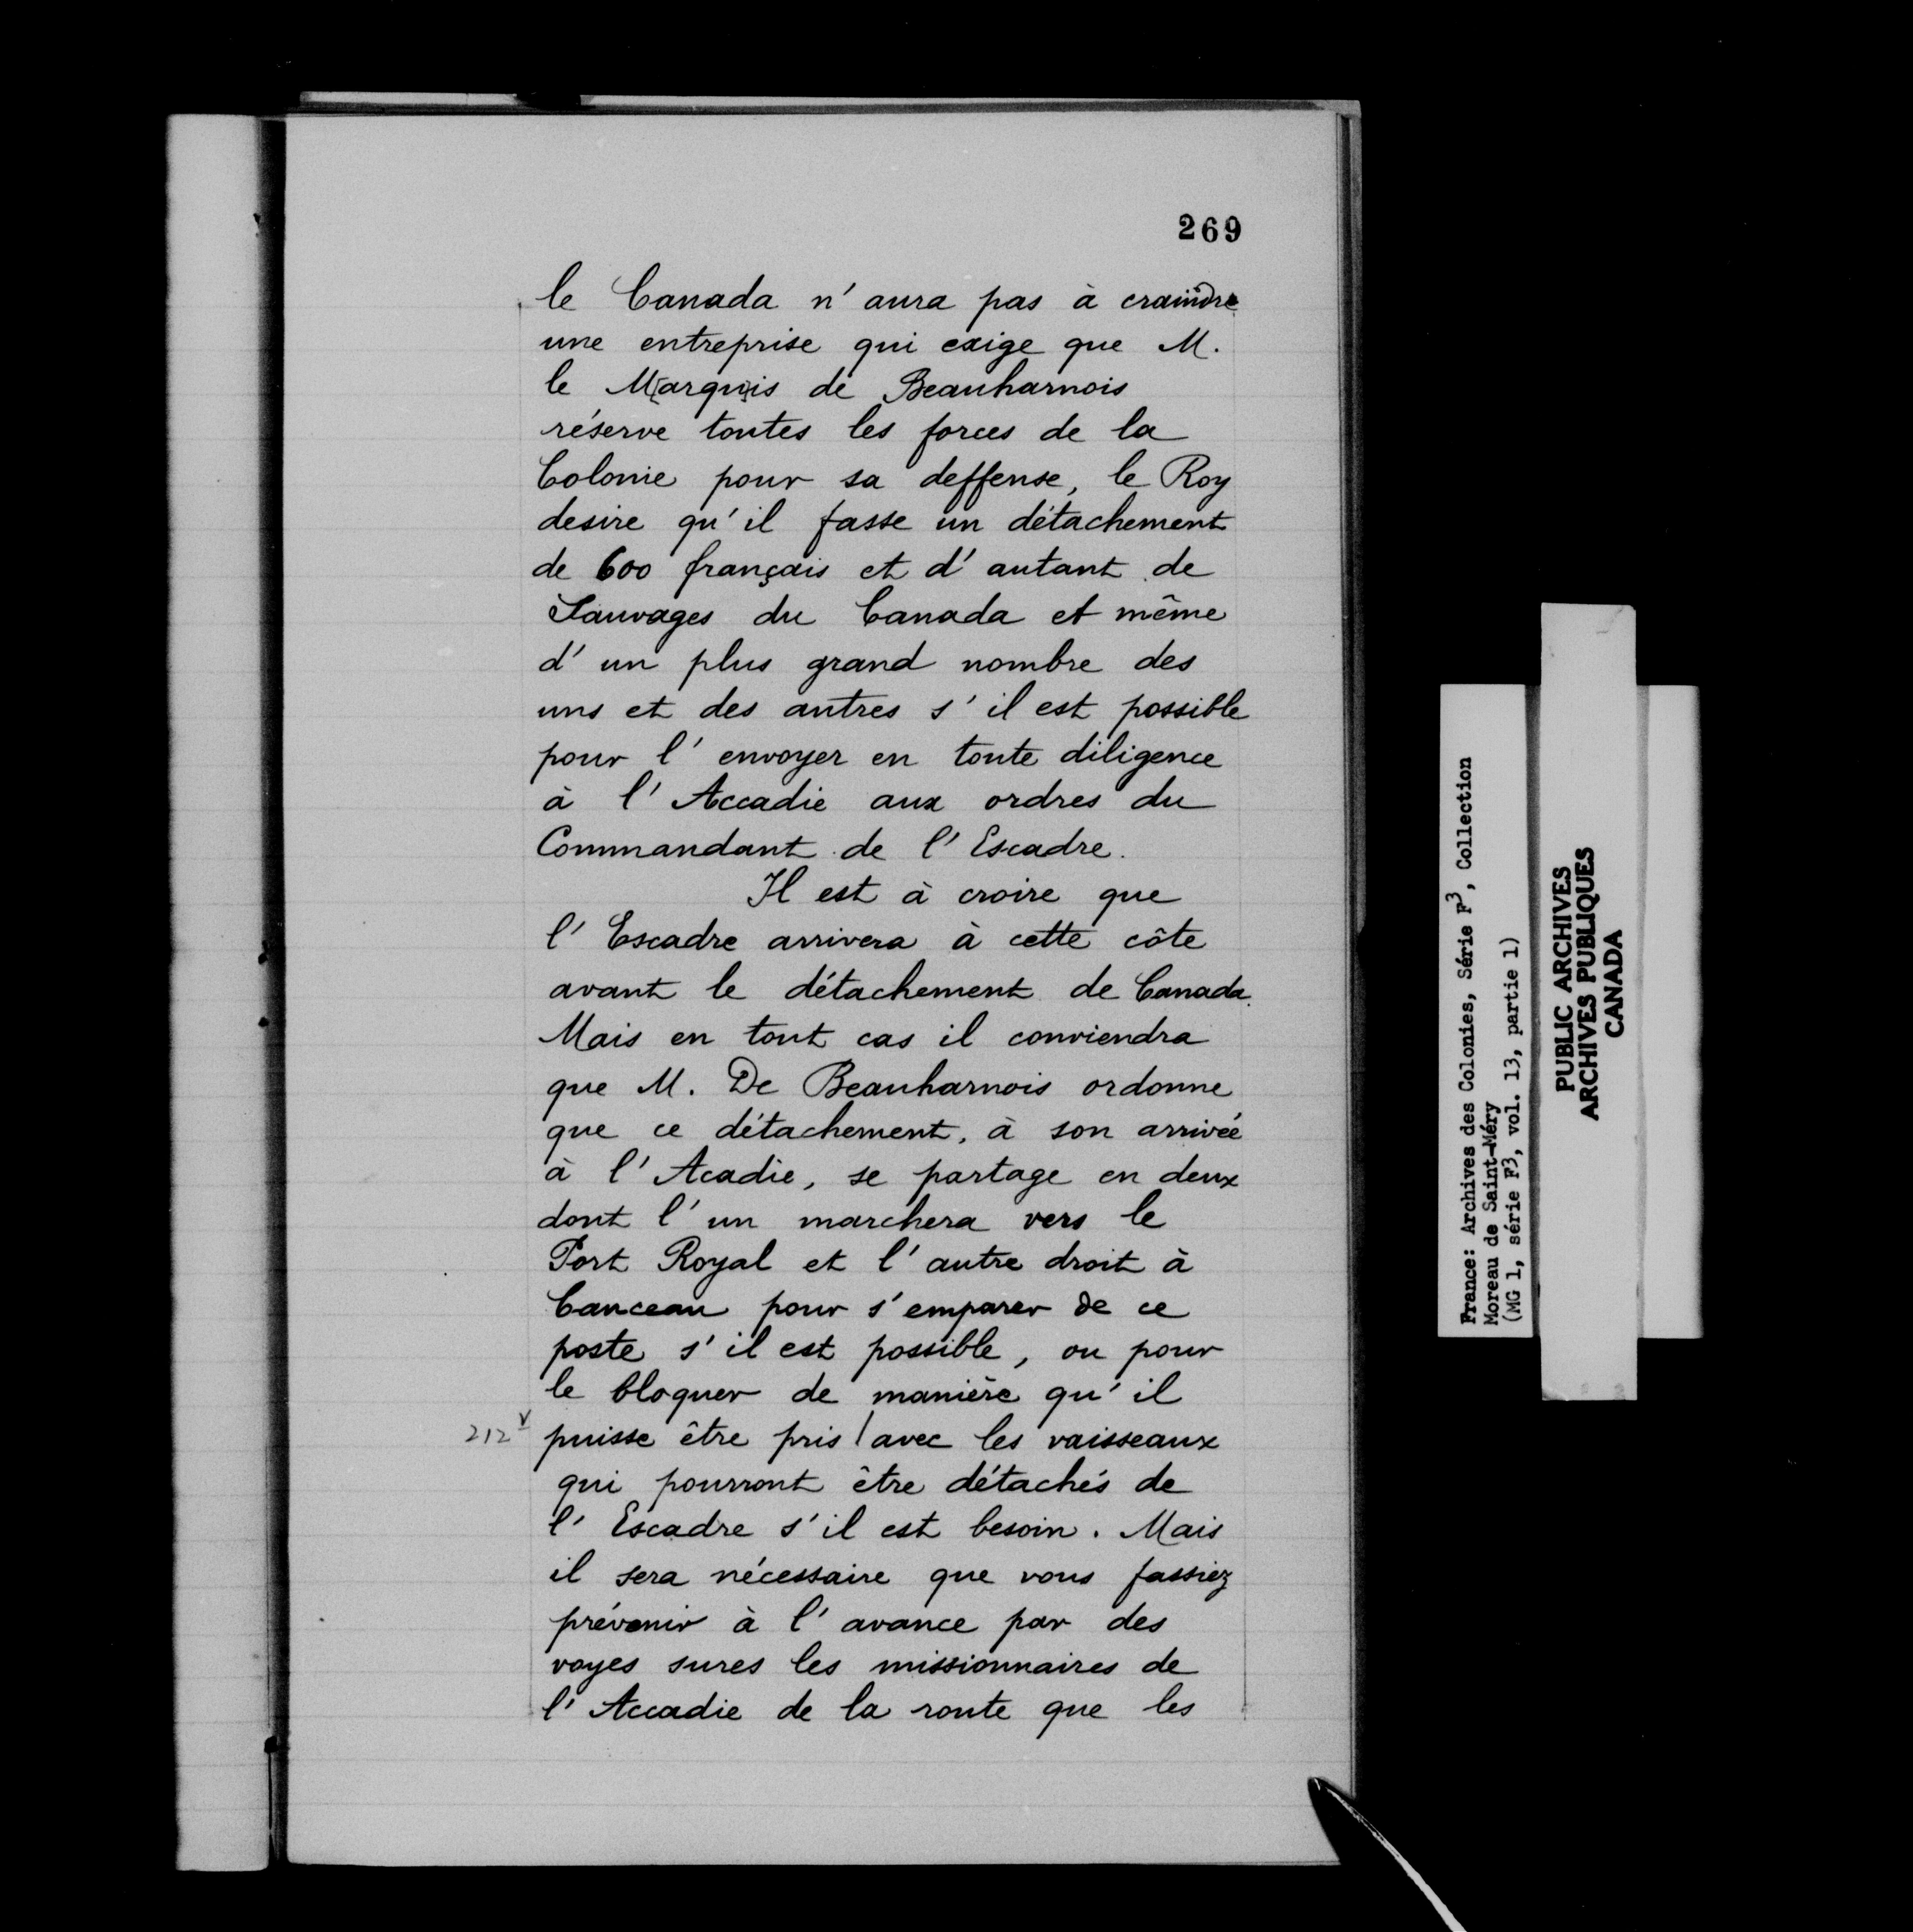 269
le Canada n'aura pas à craindre
une entreprise qui exige que M.
le M[arqu]is de Beauharnois
réserve toutes les forces de la
Colonie pour sa deffense, le Roy
desire qu'il fasse un détachement
de 600 français et d'autant de
Sauvages du Canada et même
d'un plus grand nombre des
uns et des autres s'il est possible
pour l'envoyer en toute diligence
à l'Accadie aux ordres du
Commandant de l'Escadre.
Il est à croire que
l'Escadre arrivera à cette côte
avant le détachement de Canada.
Mais en tout cas il conviendra
que M. De Beauharnois ordonne
que ce détachement, à son arrivée
à l'Acadie, se partage en deux
dont l'un marchera vers le
Port Royal et l'autre droit à
Canceau pour s'emparer de ce
poste s'il est possible, ou pour
le bloquer de manière qu'il
212v puisse être pris / avec les vaisseaux
qui pourront être détachés de
l'Escadre s'il est besoin. Mais
il sera nécessaire que vous fassiez
prévenir à l'avance par des
voyes sures les missionnaires de
l'Accadie de la route que les
France: Archives des Colonies, Série F3, Collection
Moreau de Saint-Méry
(MG 1, série F3, vol. 13, partie 1)
PUBLIC ARCHIVES
ARCHIVES PUBLIQUES
CANADA